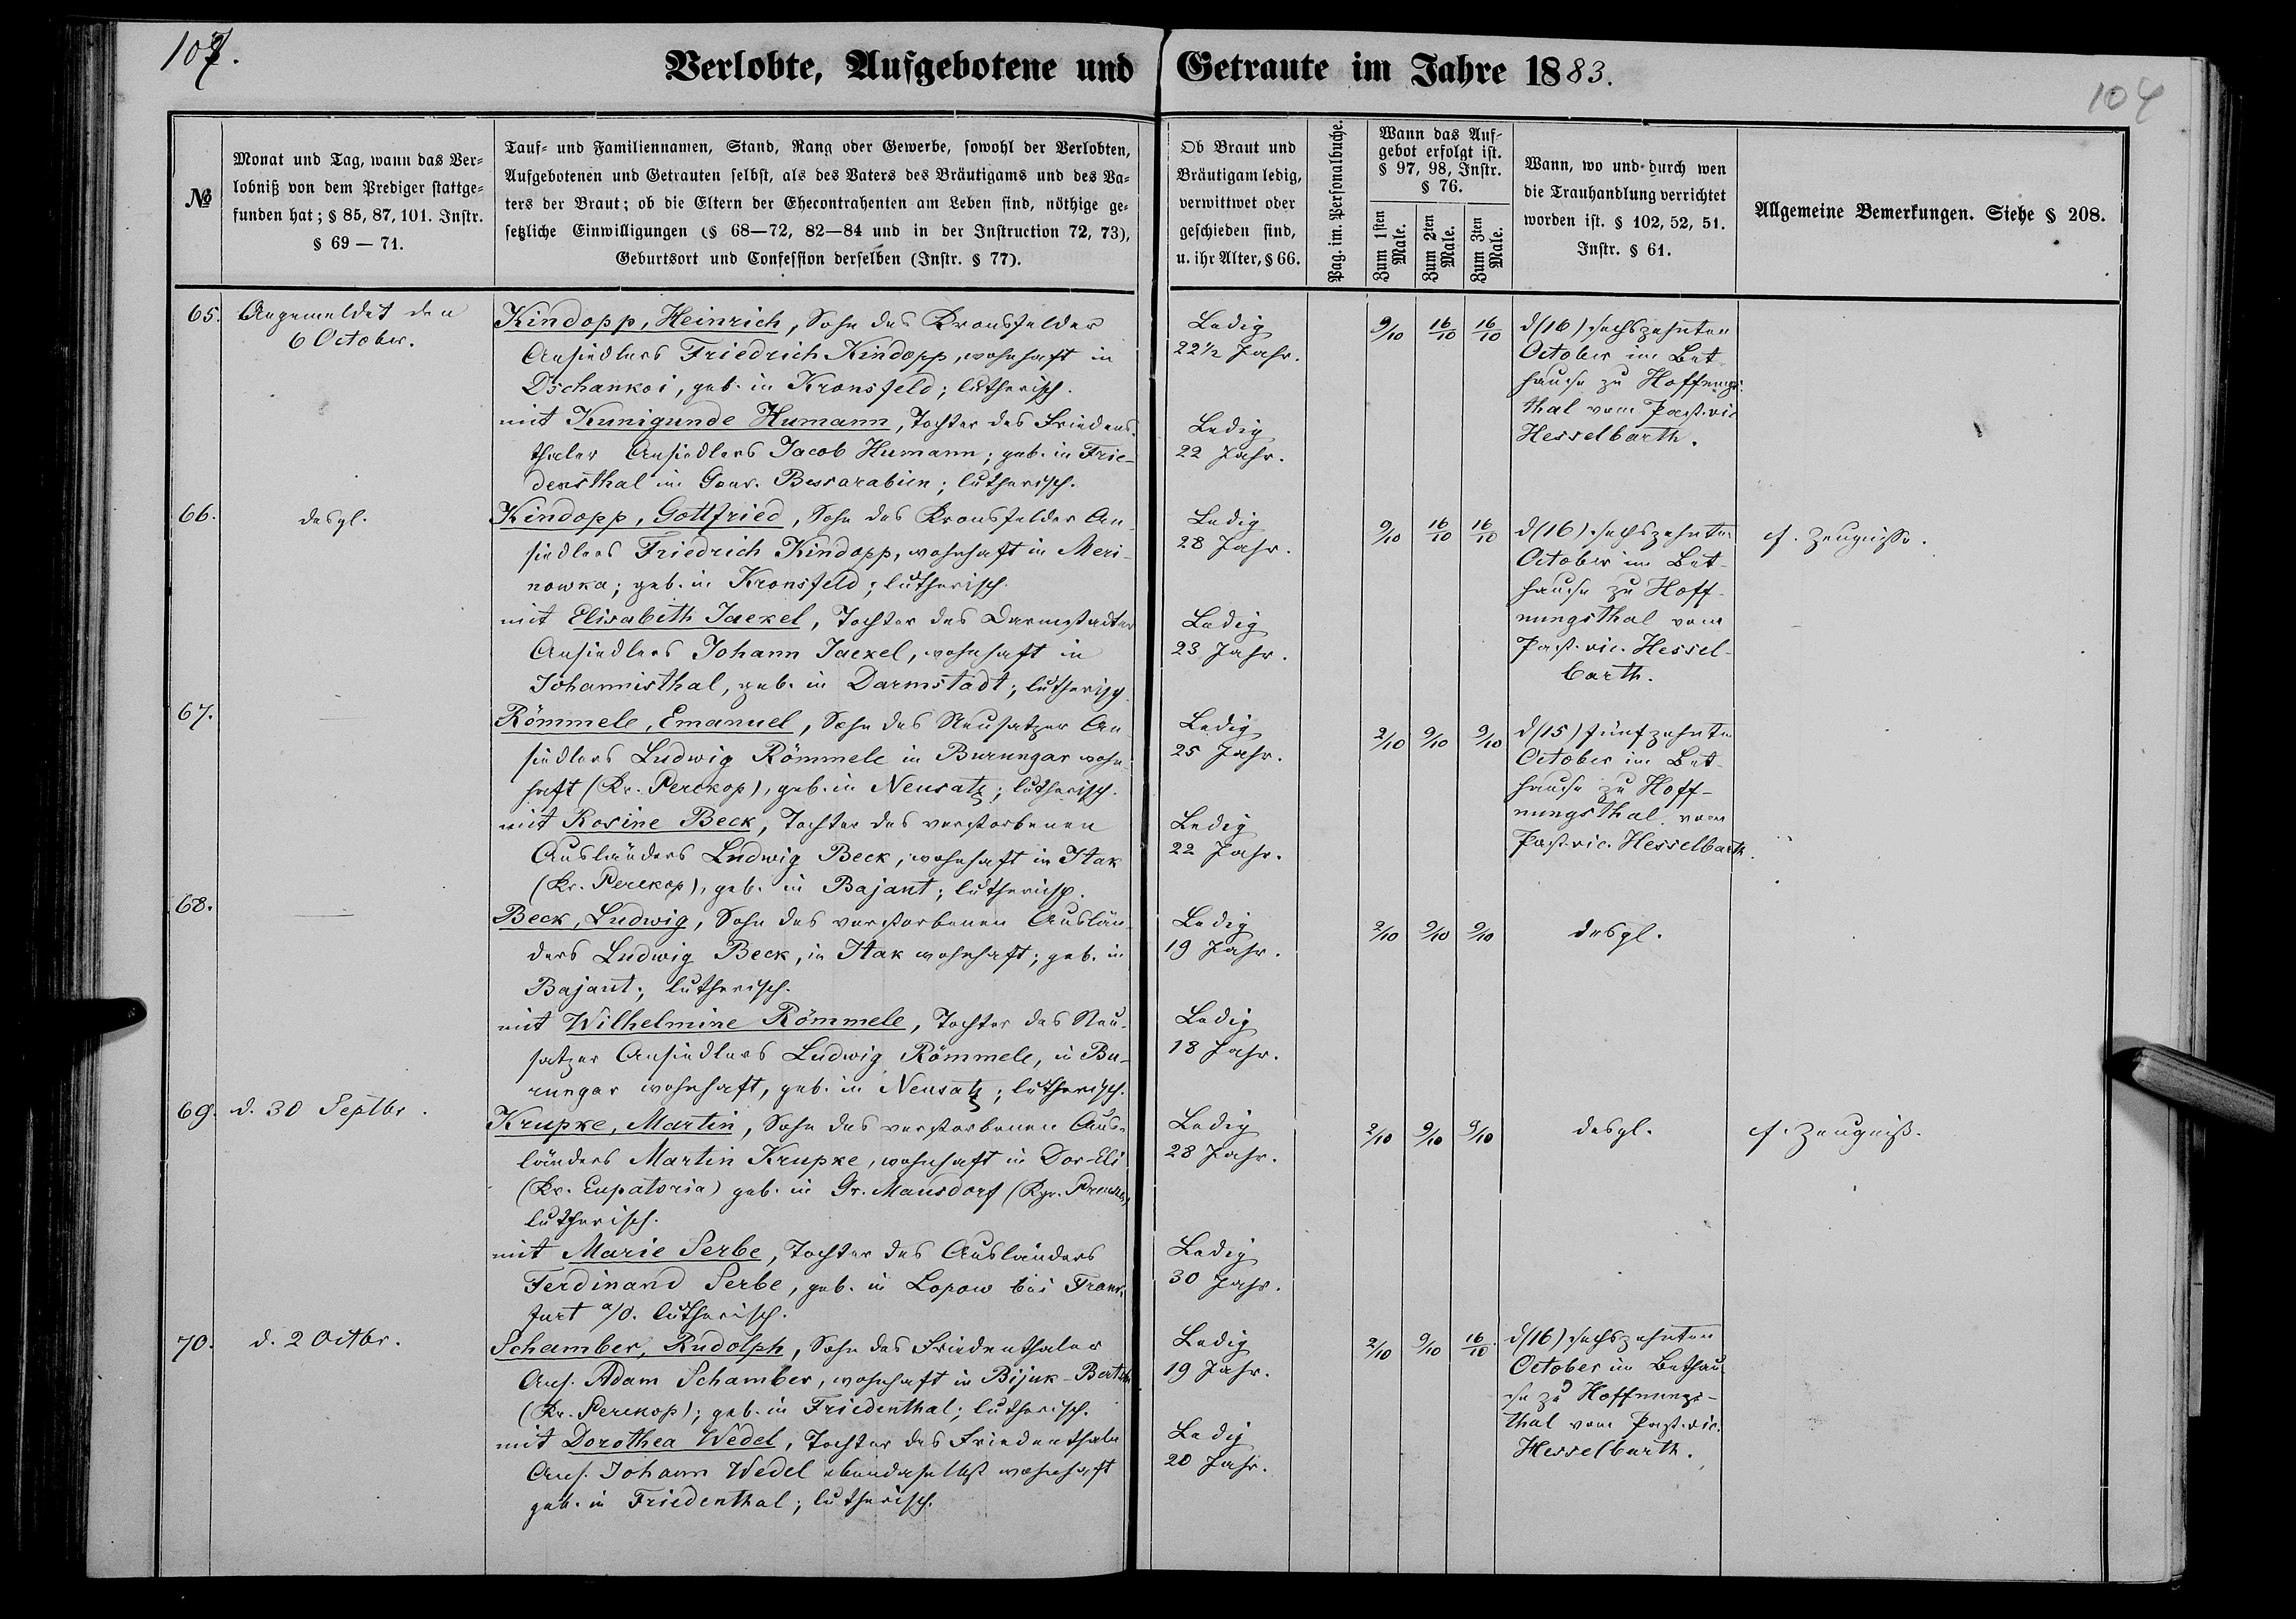 107.
Verlobte, Aufgebotene und Getraute im Jahre 1883.
104
№
Monat und Tag, wann das Ver=
lobniß von dem Prediger stattge=
funden hat; § 85, 87, 101. Instr.
§ 69 — 71.
Tauf= und Familiennamen, Stand, Rang oder Gewerbe, sowohl der Verlobten,
Aufgebotenen und Getrauten selbst, als des Vaters des Bräutigams und des Va=
ters der Braut; ob die Eltern der Ehecontrahenten am Leben sind, nöthige ge=
setzliche Einwilligungen (§ 68—72, 82—84 und in der Instruction 72, 73),
Geburtsort und Confession derselben (Instr. § 77).
Ob Braut und
Bräutigam ledig,
verwittwet oder
geschieden sind,
u. ihr Alter, § 66.
Pag. im. Personalbuche.
Wann das Auf=
gebot erfolgt ist.
§ 97, 98, Instr.
§ 76.
Zum 1sten
Male.
Zum 2ten
Male.
Zum 3ten
Male.
Wann, wo und durch wen
die Trauhandlung verrichtet
worden ist. § 102, 52, 51.
Instr. § 61.
Allgemeine Bemerkungen. Siehe § 208.
65.
Angemeldet den
6 October.
Kindopp, Heinrich, Sohn des Kronsfelder
Ansiedlers Friedrich Kindopp, wohnhaft in
Dschankoi, geb. in Kronsfeld; lutherisch.
mit Kunigunde Humann, Tochter des Friedens-
thaler Ansiedlers Jacob Humann; geb. in Frie-
densthal im Gouv. Bessarabien; lutherisch.
Ledig
22 1/2 Jahr.
Ledig
22 Jahr.
9/10 16/10 16/10
d(16) sechszehnten
October im Bet
hause zu Hoffnungs-
thal vom Past. vic
Hesselbarth.
66.
desgl.
Kindopp, Gottfried, Sohn des Kronsfelder An-
siedlers Friedrich Kindopp, wohnhaft in Meri-
nowka; geb. in Kronsfeld; lutherisch.
mit Elisabeth Jaekel, Tochter des Darmstadter
Ansiedlers Johann Jaekel, wohnhaft in
Johannisthal, geb. in Darmstadt; lutherisch
Ledig
28 Jahr.
Ledig
23 Jahr.
9/10 16/10 16/10
d(16) sechszehnten
October im Bet-
hause zu Hoff-
nungsthal vom
Past. vic. Hessel-
barth.
cf. Zeugnisse.
67.
—
Römmele, Emanuel, Sohn des Neusatzer An-
siedlers Ludwig Römmele in Burungar wohn-
haft (Kr. Perekop), geb. in Neusatz; lutherisch.
mit Rosine Beck, Tochter des verstorbenen
Ausländers Ludwig Beck, wohnhaft in Itak
(Kr. Perekop), geb. in Bajant; lutherisch.
Ledig
25 Jahr.
Ledig
22 Jahr.
2/10 9/10 9/10
d(15) fünfzehnten
October im Bet-
hause zu Hoff-
nungsthal vom
Past. vic. Hesselbarth.
68.
—
Beck, Ludwig, Sohn des verstorbenen Auslän-
ders Ludwig Beck, in Itak wohnhaft; geb. in
Bajant; lutherisch.
mit Wilhelmine Römmele, Tochter des Neu-
satzer Ansiedlers Ludwig Römmele, in Bu-
rungar wohnhaft, geb. in Neusatz; lutherisch.
Ledig
19 Jahr.
Ledig
18 Jahr.
2/10 9/10 9/10
desgl.
69.
d. 30 Septbr.
Krupke, Martin, Sohn des verstorbenen Aus-
länders Martin Krupke, wohnhaft in Dor-Eli
(Kr. Eupatoria) geb. in Gr. Mausdorf (Kgr. Preußen)
lutherisch.
mit Marie Serbe, Tochter des Ausländers
Ferdinand Serbe, geb. in Lopow bei Frank-
furt a/O. lutherisch.
Ledig
28 Jahr.
Ledig
30 Jahr.
2/10 9/10 9/10
desgl.
cf. Zeugniß.
70.
d. 2 Octbr.
Schamber, Rudolph, Sohn des Friedenthaler
Ans. Adam Schamber, wohnhaft in Bijuk-
(Kr. Perekop); geb. in Friedenthal; lutherisch.
mit Dorothea Wedel, Tochter des Friedenthaler
Ans. Johann Wedel ebendaselbst wohnhaft
geb. in Friedenthal; lutherisch.
Ledig
19 Jahr.
Ledig
20 Jahr.
2/10 9/10 16/10
d(16) sechszehnten
October im Bethau-
se zu Hoffnungs-
thal vom Past. vic.
Hesselbarth.